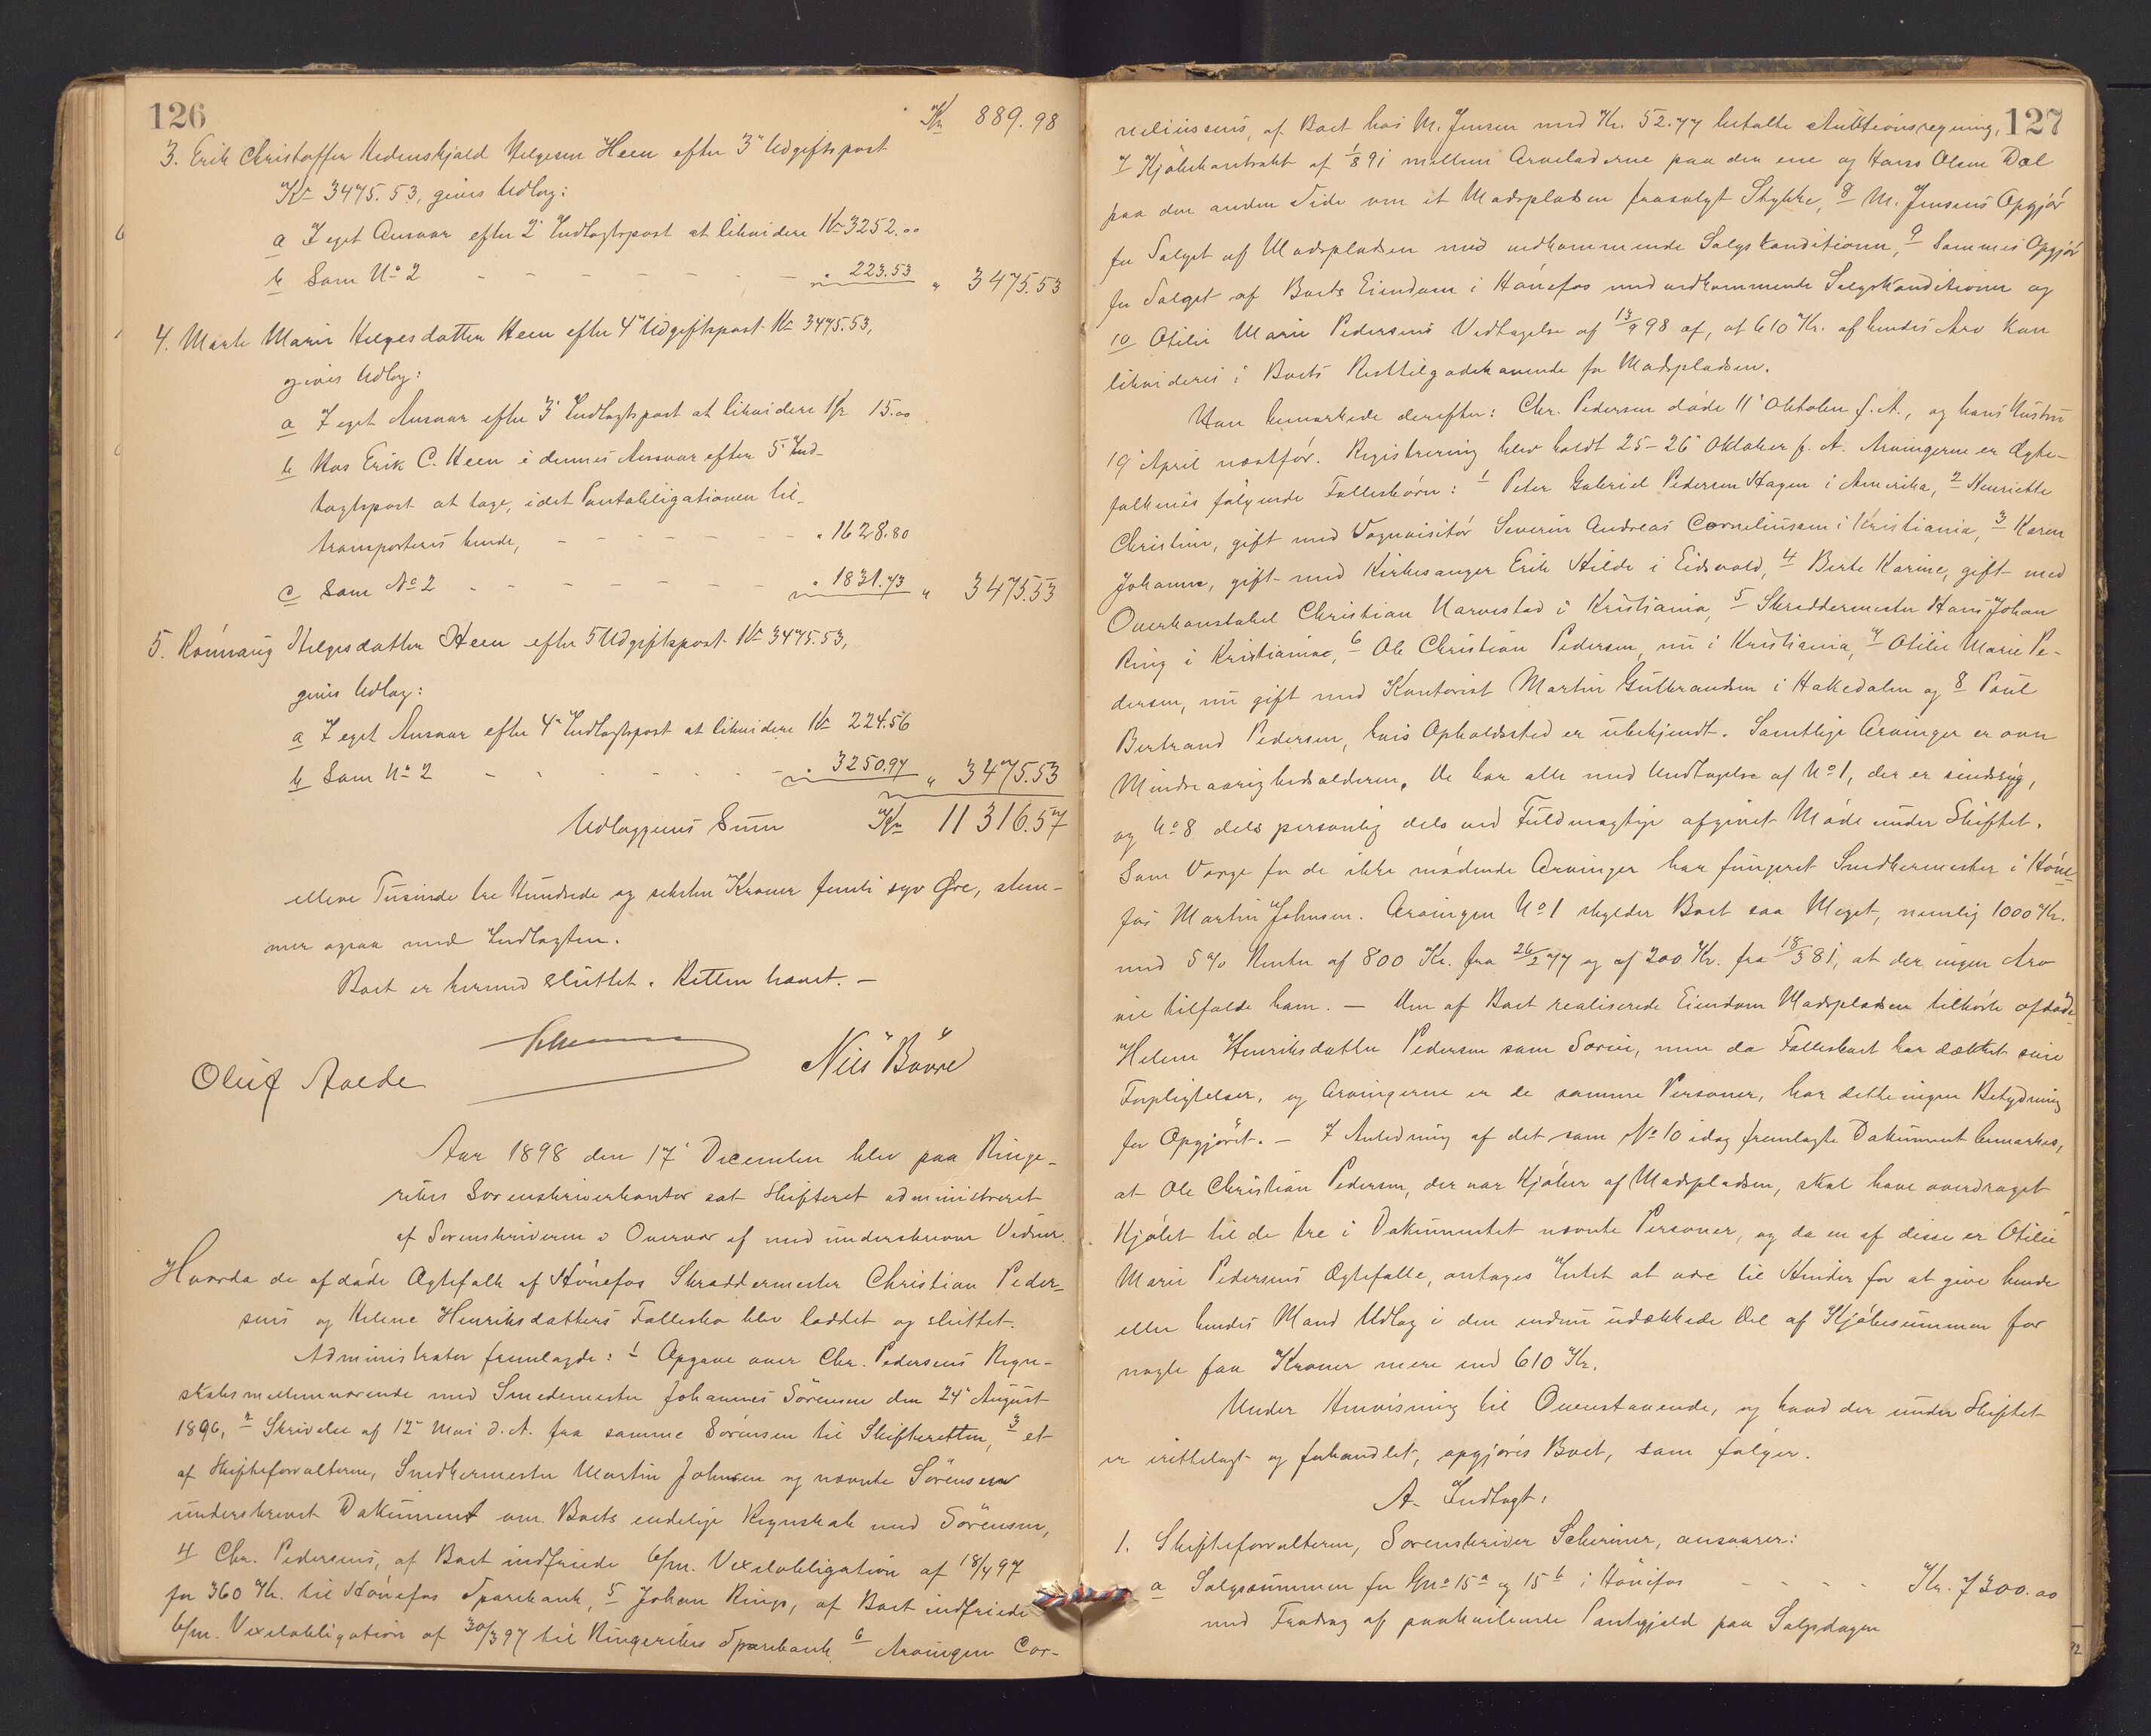 126
Kr 889.98
3. Erik Christoffer Hedenskjold Helgesen Heen efter 3' Udgiftspost
Kr 3475.53, gives Udlæg:
a I eget Ansvar efter 2' Indtægtspost at likvidere Kr 3252.00
b Som No 2 - - - - - - - " 223.53 " 3475.53
4. Marte Marie Helgesdatter Heen efter 4' Udgiftspost Kr 3475.53,
gives Udlæg:
a I eget Ansvar efter 3' Indtægtspost at likvidere Kr 15.00
b Hos Erik C. Heen i dennes Ansvar efter 5' Ind-
tægtspost at tage, idet Pantobligationen til-
transporteres hende, - - - - - - - " 1628.80
c Som No 2 - - - - - - - " 1831.73 " 3475.53
5. Rønnaug Helgesdatter Heen efter 5 Udgiftspost Kr 3475.53,
gives Udlæg:
a I eget Ansvar efter 4' Indtægtspost at likvidere Kr 224.56
b Som No 2 - - - - - - " 3250.97 " 3475.53
Udlæggenes Sum Kr 11316.57
elleve Tusinde tre Hundrede og seksten Kroner femti syv Øre, stem-
mer ogsaa med Indtægten.
Boet er hermed sluttet. Retten hævet. —
Oluf Aalde Nils Bövre
Aar 1898 den 17' December blev paa Ringe-
rikes Sorenskriverkontor sat Skifteret administreret
af Sorenskriveren i Overvær af med underskrevne Vidner.
Hvorda de afdøde Ægtefolk af Hønefos Skræddermester Christian Peder-
sens og Helene Henriksdatters Fællesbo blev loddet og sluttet.
Administrator fremlagde: 1 Opgave over Chr. Pedersens Regn-
skabsmellemværende med Smedemester Johannes Sörensen den 24' August
1896, 2 Skrivelse af 12' Mai d. A. fra samme Sörensen til Skifteretten, 3 et
af Skifteforvalteren, Snedkermester Martin Johnsen og nævnte Sörensen
underskrevet Dokument om Boets endelige Regnskab med Sörensen,
4 Chr. Pedersens, af Boet indfriede 6/m. Vexelobligation af 18/4 97
for 360 Kr. til Hønefos Sparebank, 5 Johan Rings, af Boet indfriede
6/m. Vexelobligation af 30/3 97 til Ringerikes Sparebank, 6 Arvingen Cor-
127
neliussens, af Boet hos M. Jensen med Kr. 52.77 betalte Auktionsregning,
7 Kjøbekontrakt af 1/8 91 mellem Arveladerne paa den ene og Hans Olsen Dæl
paa den anden Side om et Madspladsen frasolgt Stykke, 8 M. Jensens Opgjør
for Salget af Madspladsen med vedkommende Salgskonditioner, 9 Sammes Opgjør
for Salget af Boets Eiendom i Hønefos med vedkommende Salgskonditioner og
10 Otilie Marie Pedersens Vedtagelse af 13/9 98 af, at 610 Kr. af hendes Arv kan
likvideres i Boets Resttilgodehavende for Madspladsen.
Man bemærkede derefter: Chr. Pedersen døde 11' Oktober f. A., og hans Hustru
19' April næstfør. Registrering blev holdt 25-26' Oktober f. A. Arvingerne er Ægte-
folkenes følgende Fællesbørn: 1 Peter Gabriel Pedersen Hagen i Amerika, 2 Henriette
Christine, gift med Vognvisitør Severin Andreas Corneliussen i Kristiania, 3 Karen
Johanne, gift med Kirkesanger Erik Hilde i Eidsvold, 4 Berte Karine, gift med
Overkonstabel Christian Harvestad i Kristiania, 5 Skræddermester Hans Johan
Ring i Kristiania, 6 Ole Christian Pedersen, nu i Kristiania, 7 Otilie Marie Pe-
dersen, nu gift med Kontorist Martin Gulbrandsen i Hakedalen og 8 Paul
Bertrand Pedersen, hvis Opholdssted er ubekjendt. Samtlige Arvinger er over
Mindreaarighedsalderen. De har alle med Undtagelse af No 1, der er sindssyg,
og No 8 dels personlig dels ved Fuldmægtige afgivet Møde under Skiftet.
Som Værge for de ikke mødende Arvinger har fungeret Snedkermester i Høne-
fos Martin Johnsen. Arvingen No 1 skylder Boet saa Meget, nemlig 1000 Kr.
med 5 % Renter af 800 Kr. fra 26/2 77 og af 200 Kr. fra 18/3 81, at der ingen Arv
vil tilfalde ham. — Den af Boet realiserede Eiendom Madspladsen tilhørte afdøde
Helene Henriksdatter Pedersen som Særeie, men da Fællesboet har dækket sine
Forpligtelser, og Arvingerne er de samme Personer, har dette ingen Betydning
for Opgjøret. — I Anledning af det som No 10 idag fremlagte Dokument bemærkes,
at Ole Christian Pedersen, der var Kjøber af Madspladsen, skal have overdraget
Kjøbet til de tre i Dokumentet nævnte Personer, og da en af disse er Otilie
Marie Pedersens Ægtefælle, antages Intet at være til Hinder for at give hende
eller hendes Mand Udlæg i den endnu udækkede Del af Kjøbesummen for
nogle faa Kroner mere end 610 Kr.
Under Henvisning til Ovenstaaende, og hvad der under Skiftet
er irettelagt og forhandlet, opgjøres Boet, som følger.
A. Indtægt.
1. Skifteforvalteren, Sorenskriver Scheriner, ansvarer:
a Salgssummen for Gno 15a og 15b i Hønefos - - - - Kr. 7300.00
med Fradrag af paahvilende Pantgjæld paa Salgsdagen